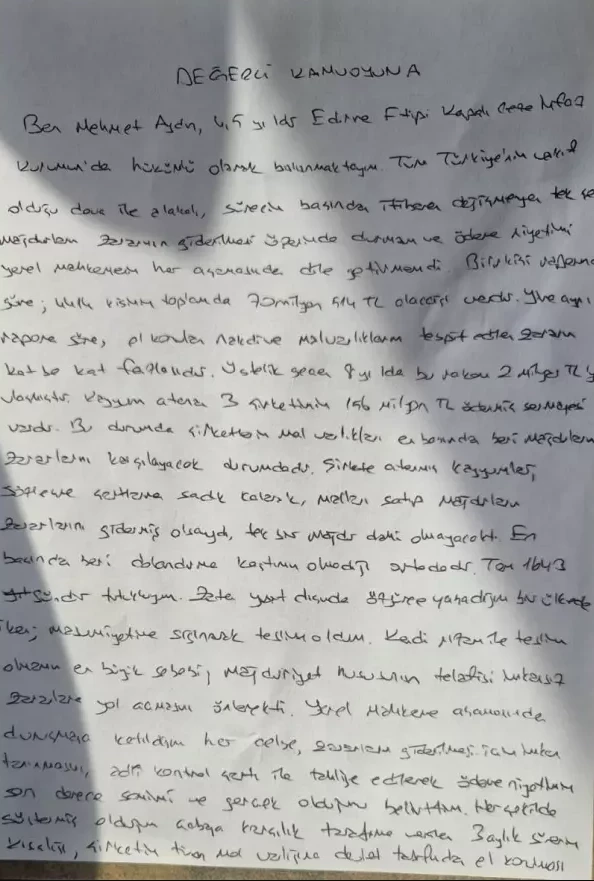 DEĞERLİ KAMUOYUNA
Ben Mehmet Aydın, 4,5 yıldır Edirne F tipi Kapalı Ceza İnfaz
Kurumu'da hükümlü olarak bulunmaktayım. Tüm Türkiye'nin vakıf
olduğu dava ile alakalı, sürecin başından itibaren değişmeyen tek
mağdurların zararının giderilmesi üzerinde durmam ve ödeme niyetimi
yerel mahkemenin her aşamasında dile getirmemdi. Bilirkişi raporuna
göre; toplamda 70 milyon 514 TL olacağı vardı. Yine aynı
rapora göre, el konulan nakdi ve malvarlıklarım tespit edilen zararın
kat be kat fazlasıdır. Üstelik geçen 4 yılda bu rakam 2 milyar TL'ye
ulaşmıştır. Kayyum atanan 3 şirketimin 156 milyon TL ödenmiş sermayesi
vardır. Bu durumda şirketlerin mal varlıkları en başından beri mağdurların
zararlarını karşılayacak durumdadır. Şirkete atanmış kayyumlar,
sözleşme şartlarına sadık kalarak, malları satıp mağdurların
zararlarını gidermiş olsaydı, tek bir mağdur dahi olmayacaktı. En
başından beri dolandırma kastımın olmadığı ortadadır. Tam 1643
gündür tutukluyum. Zaten yurt dışında özgürce yaşadığım bir ülkede
iken; masumiyetime sığınarak teslim oldum. Kendi rızam ile teslim
olmamın en büyük sebebi; mağduriyet hususunun telafisi imkansız
zararlara yol açmasını önlemekti. Yerel mahkeme aşamasında
duruşmaya katıldığım her celse, zararların giderilmesi için imkan
tanınmasını, adli kontrol şartı ile tahliye edilerek ödeme niyetimin
son derece samimi ve gerçek olduğunu belirttim. Her şekilde
göstermiş olduğum çabaya karşılık tarafıma verilen 3 aylık sürenin
kısalığı, şirketin tüm mal varlığına devlet tarafından el konması